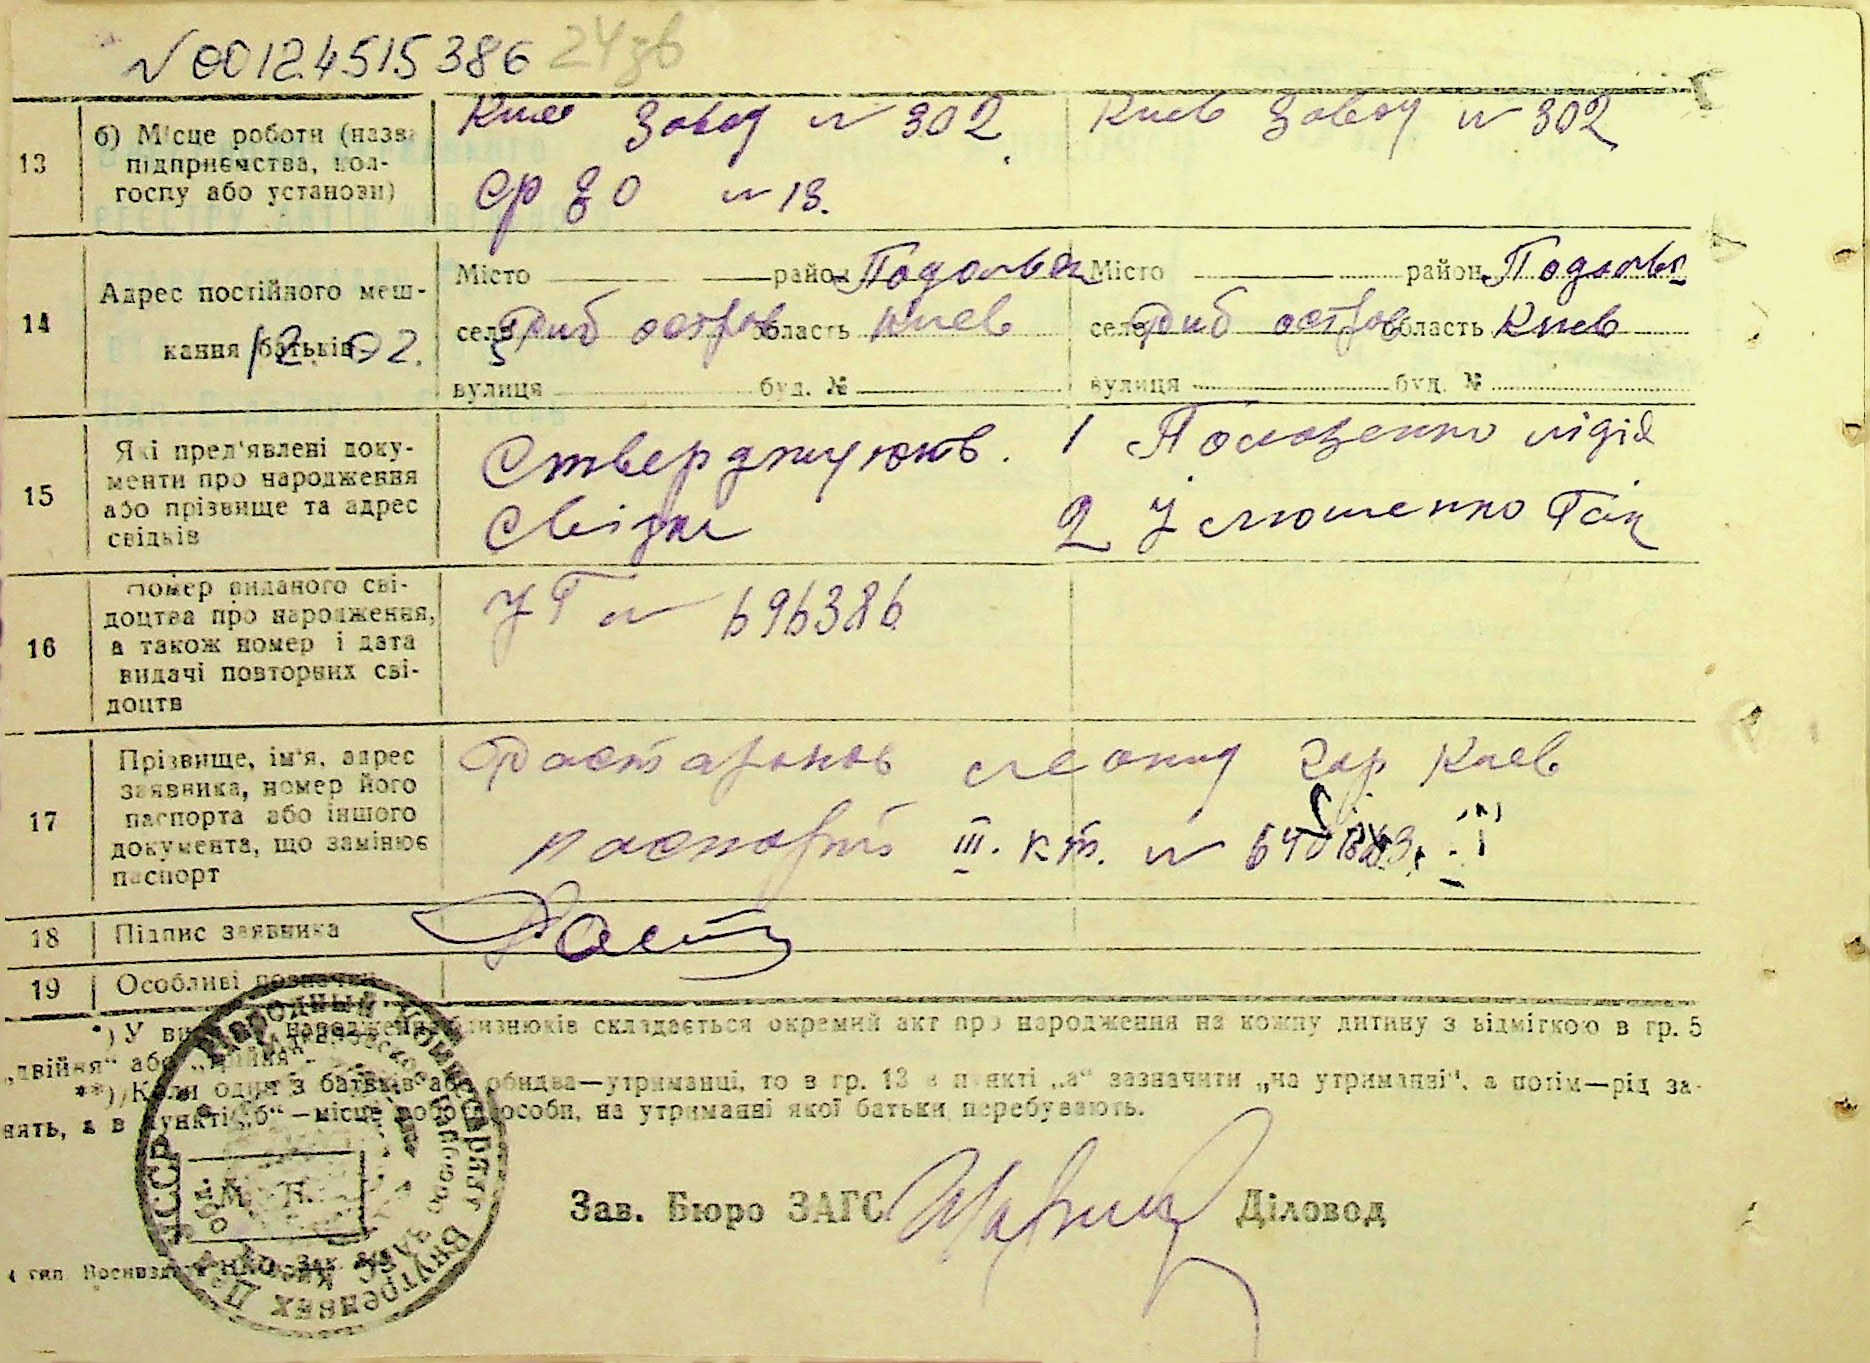 N 00124515386 24зв
13
б) Місце роботи (назва підприємства, кол-
госпу або установи)
Киев Завод N 302
Киев Завод N 302
N 13.
14
Адрес постійного меш-
кання батьків
12.
Місто район Подольск
село Риб остров область Киев
вулиця буд. №
Місто район Подольск
село Риб остров область Киев
вулиця буд. №
15
Які пред'явлені доку-
менти про народження
або прізвище та адрес
свідків
Стверджують.
свідки
1 лідія
2 Устюшенко
16
Номер виданого сві-
доцтва про народження,
а також номер і дата
видачі повторних сві-
доцтв
УГ N 696386
17
Прізвище, ім'я, адрес
заявника, номер його
паспорта або іншого
документа, що замінює
паспорт
Леонид гор Киев
паспорт III. кт. N
18 Підпис заявника
19 Особливі позначки
*) У випадку народження близнюків складається окремий акт про народження на кожну дитину з відміткою в гр. 5
„двійня“ або „трійня“.
**) Коли один з батьків або обидва—утриманці, то в гр. 13 в пункті „а“ зазначити „на утриманні“, а потім—рід за-
нять, а в пункті „б“ — місце роботи особи, на утриманні якої батьки перебувають.
Народный Комиссариат Внутренних Дел УССР
М. П.
Зав. Бюро ЗАГС
Діловод